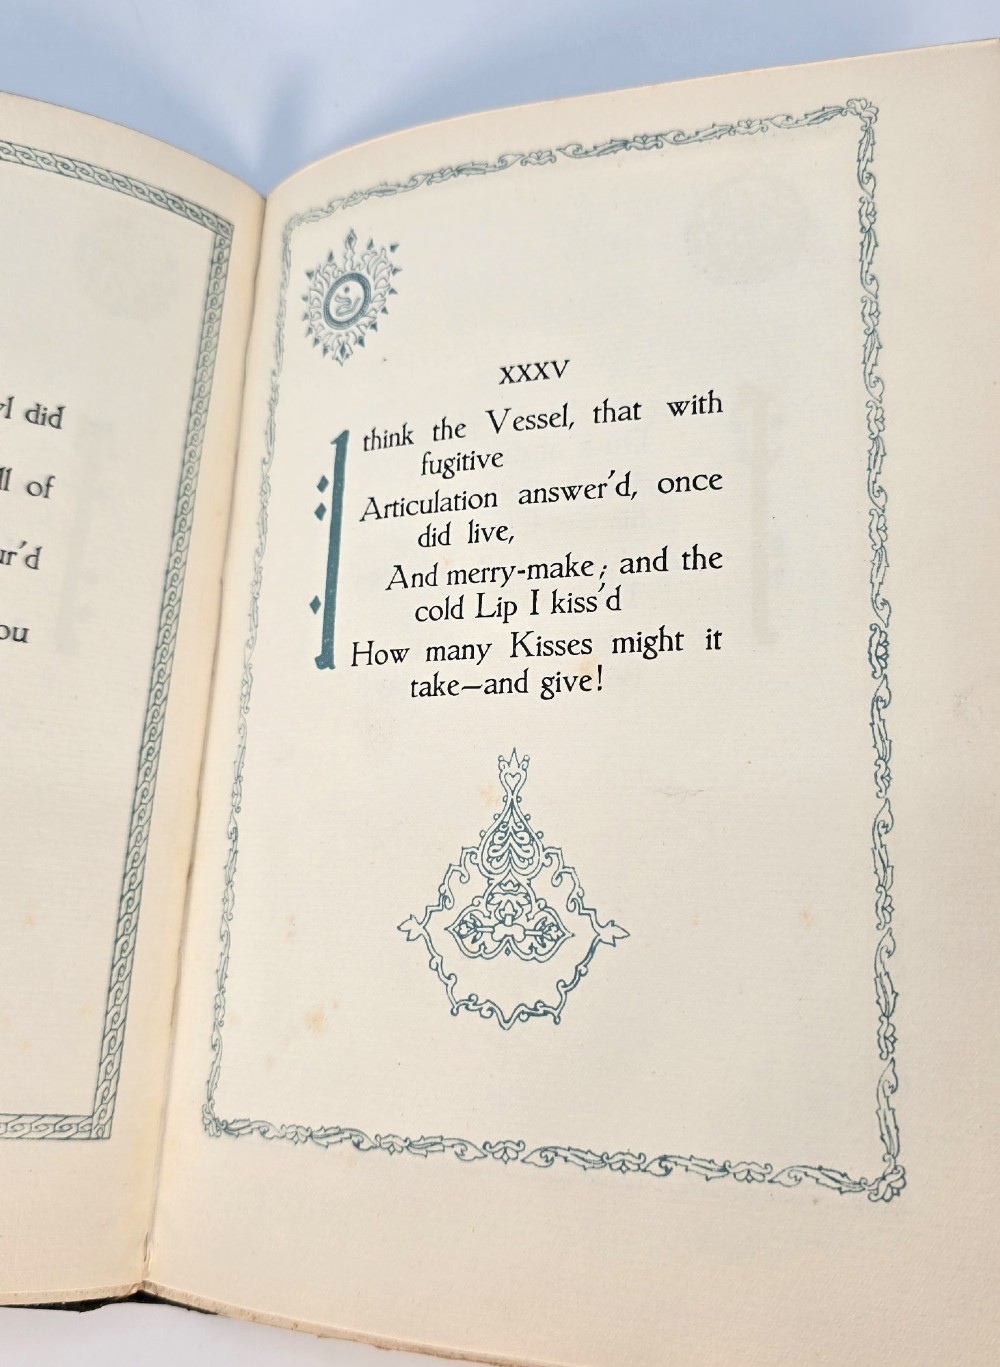 did
of
XXXV
I think the Vessel, that with
fugitive
Articulation answer'd, once
did live,
And merry-make; and the
cold Lip I kiss'd
How many Kisses might it
take—and give!